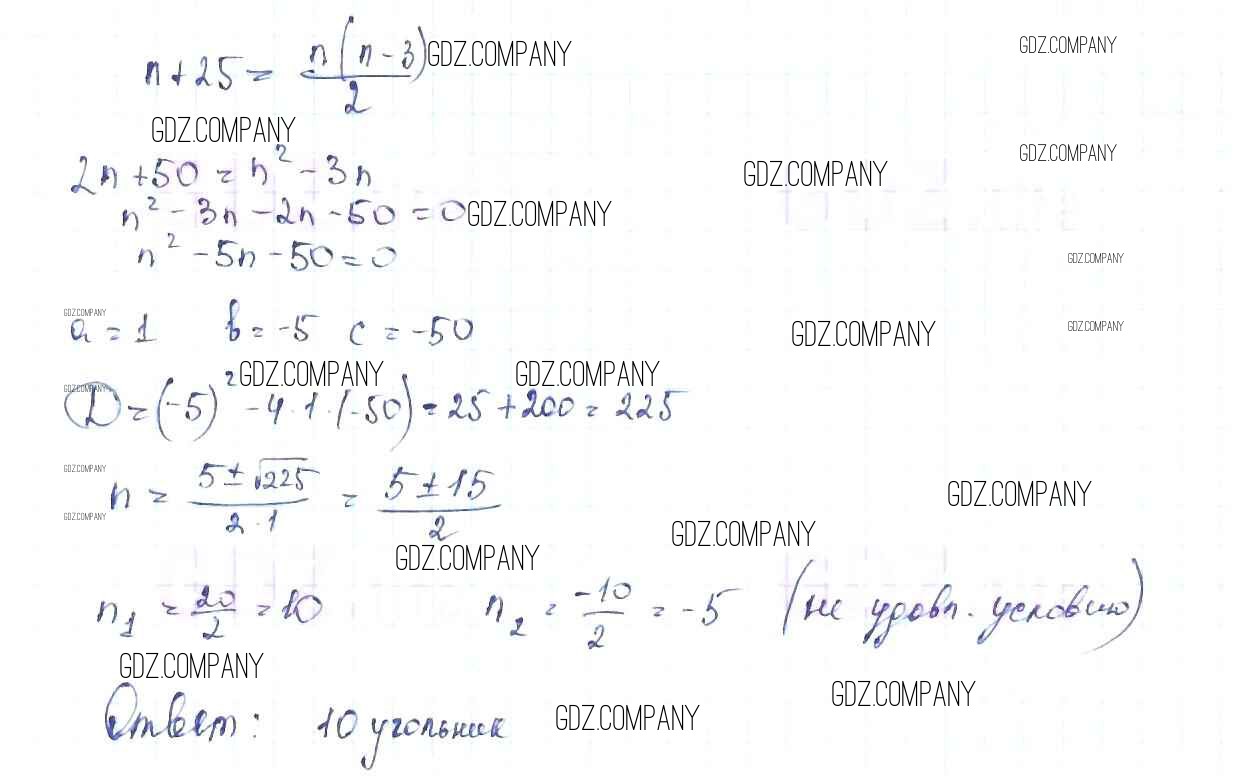 n + 25 = n(n - 3)/2 GDZ.COMPANY GDZ.COMPANY
GDZ.COMPANY
2n + 50 = n² - 3n GDZ.COMPANY GDZ.COMPANY
n² - 3n - 2n - 50 = 0 GDZ.COMPANY
n² - 5n - 50 = 0 GDZ.COMPANY
GDZ.COMPANY
a = 1 b = -5 c = -50 GDZ.COMPANY GDZ.COMPANY
GDZ.COMPANY GDZ.COMPANY GDZ.COMPANY
D = (-5)² - 4·1·(-50) = 25 + 200 = 225
GDZ.COMPANY
n = (5 ± √225)/(2·1) = (5 ± 15)/2 GDZ.COMPANY
GDZ.COMPANY GDZ.COMPANY
GDZ.COMPANY
n₁ = 20/2 = 10 n₂ = -10/2 = -5 (не удовл. условию)
GDZ.COMPANY GDZ.COMPANY
Ответ: 10 угольник GDZ.COMPANY